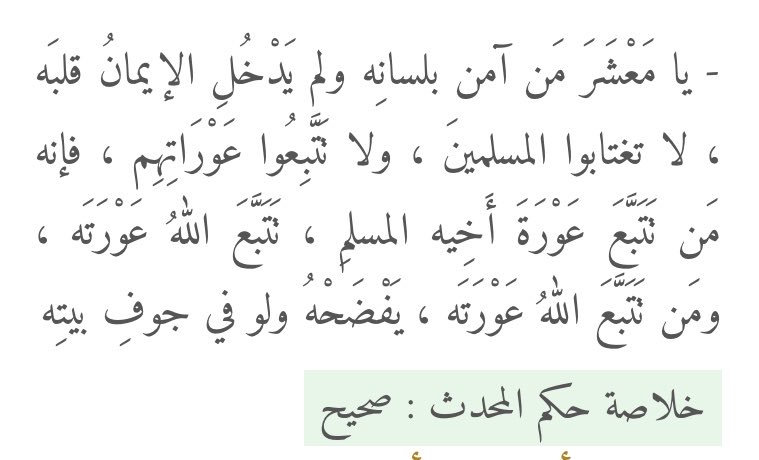 - يا مَعْشَرَ مَن آمن بلسانِه ولم يَدْخُلِ الإيمانُ قلبَه
، لا تغتابوا المسلمينَ ، ولا تَتَّبِعُوا عَوْرَاتِهِم ، فإنه
مَن تَتَبَّعَ عَوْرَةَ أَخِيه المسلمِ ، تَتَبَّعَ اللهُ عَوْرَتَه ،
ومَن تَتَبَّعَ اللهُ عَوْرَتَه ، يَفْضَحْهُ ولو في جوفِ بيتِه
خلاصة حكم المحدث : صحيح